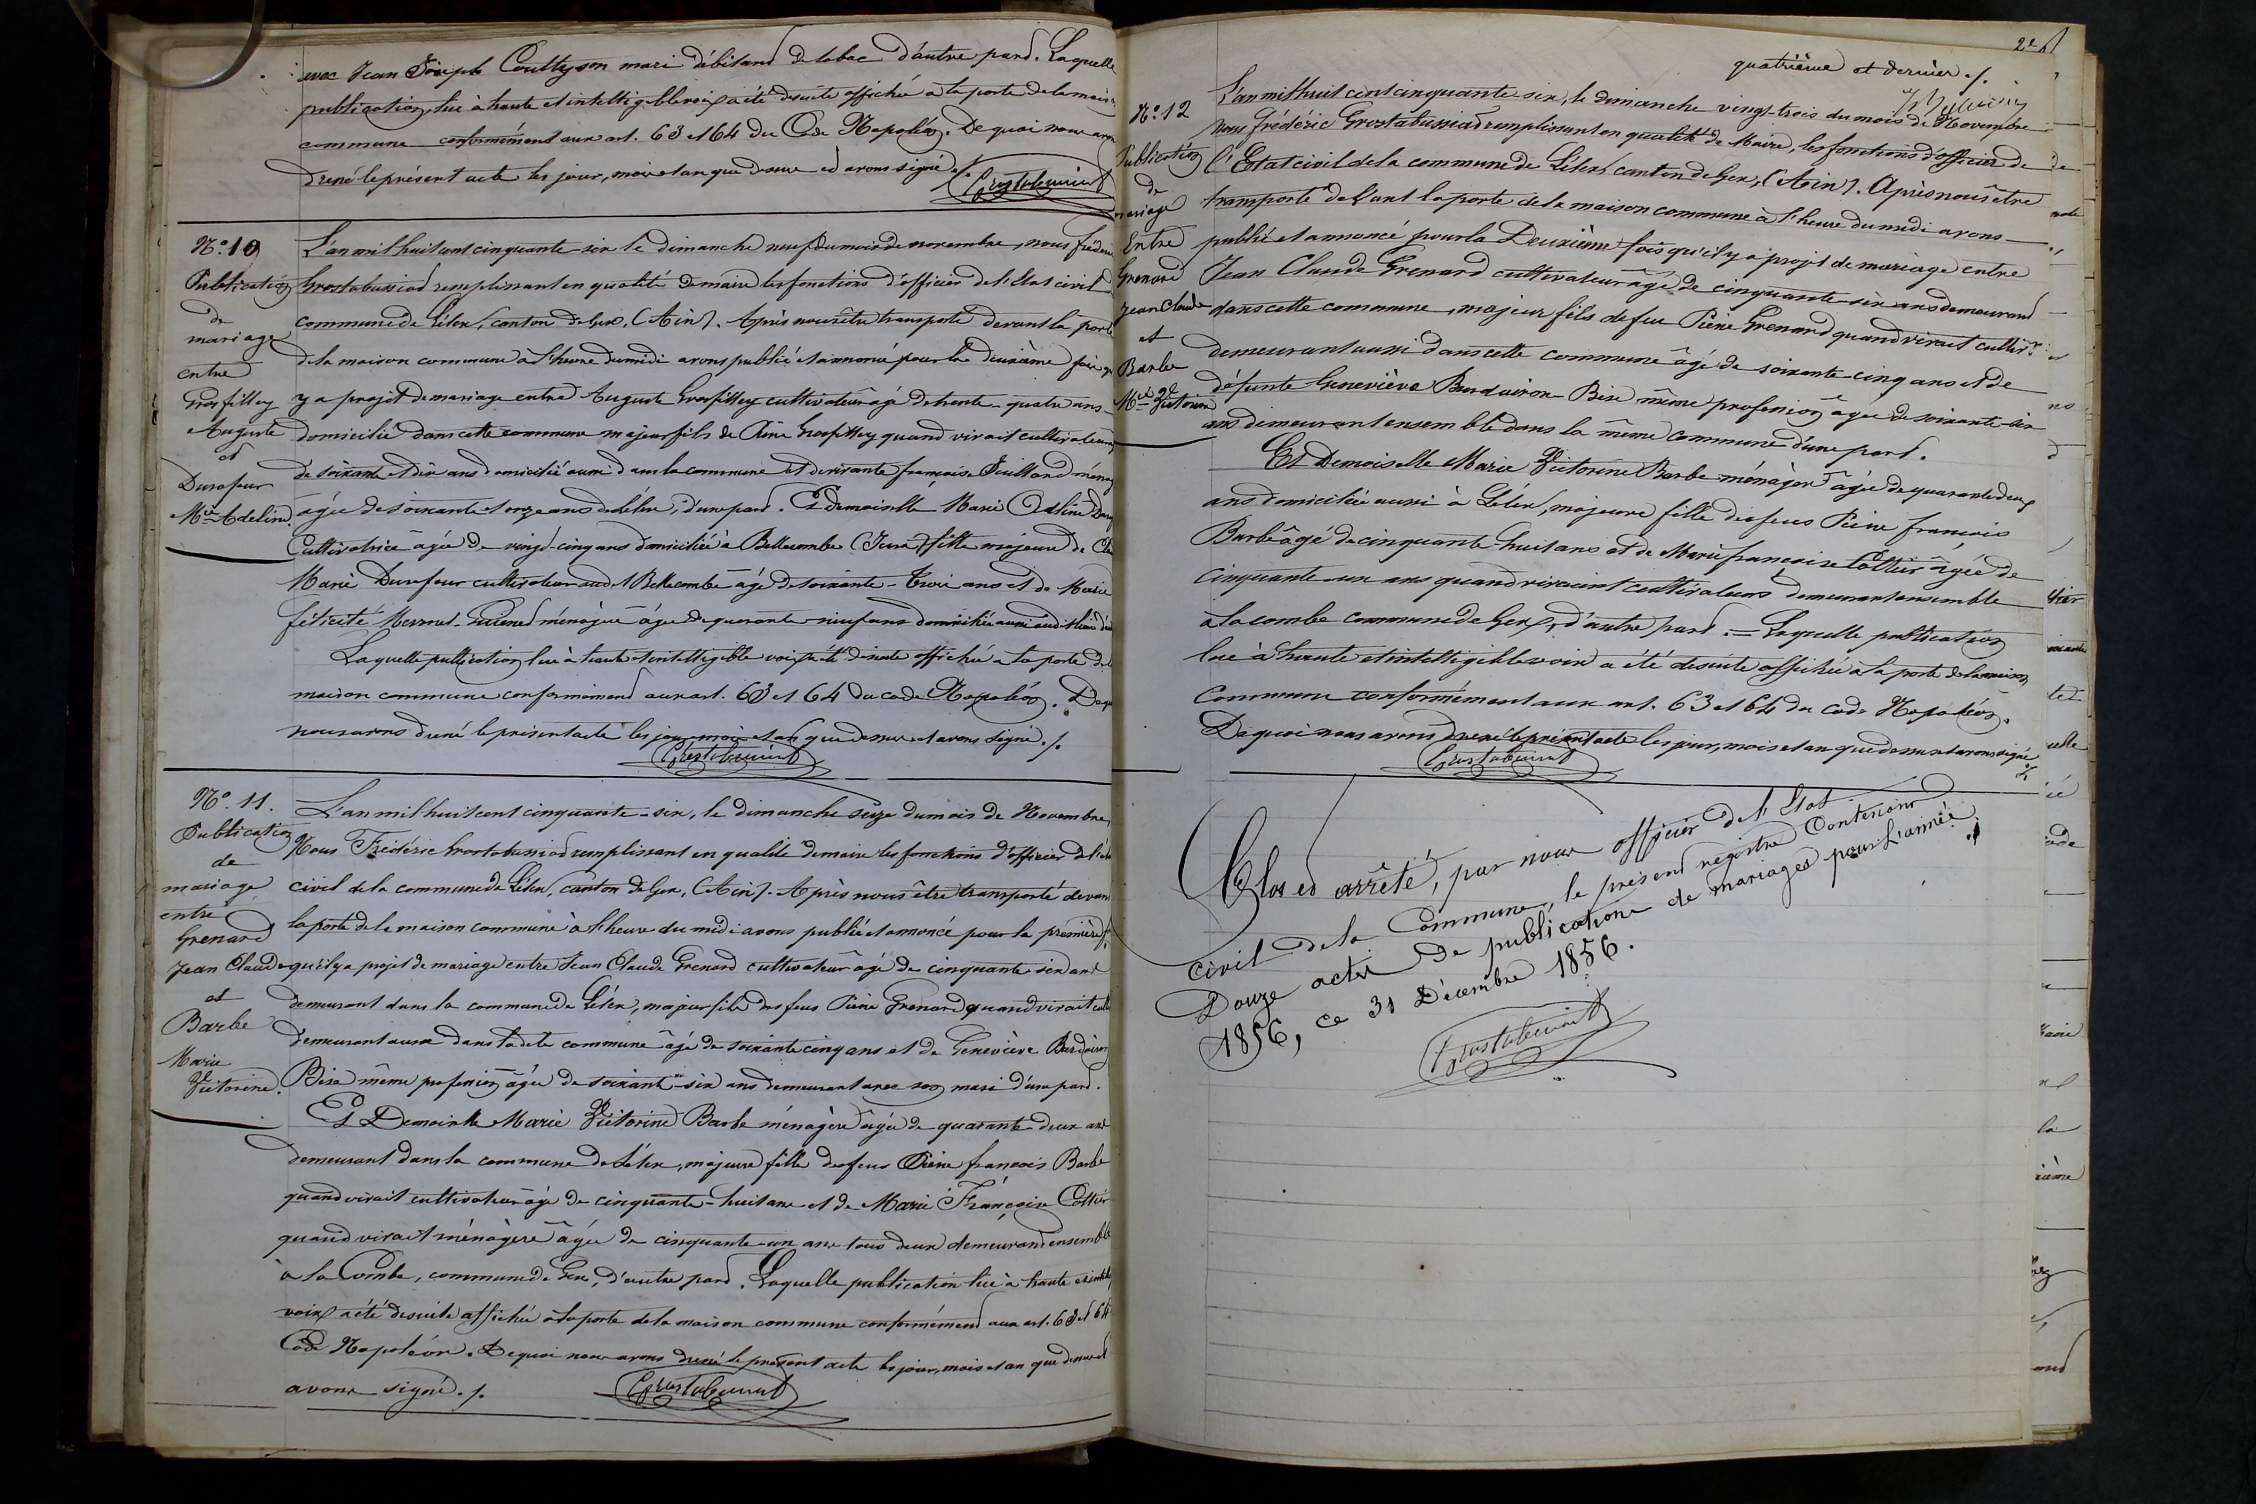 avec Jean Joseph Coutty son mari débitand de tabac d'autre pard. Laquelle
publication, lue à haute et intelligible voix, a été desuite affichée à la porte de la maison
commune conformément aux art. 63 et 64 du Code Napoléon. De quoi nous avons
dressé le présent acte les jour, mois et an que dessus et avons signé ./.
N.º 10
Publication
de
mariage
entre
Grosfilley
Auguste
et
Durafour
M.ie Adeline.
L'an mil huit cent cinquante-six le dimanche neuf du mois de novembre, nous frédéric
Grostabussiad remplissant en qualité de maire les fonctions d'officier de l'Etat civil
commune de Lélex, canton de Gex, (Ain). Après nous être transporté devant la porte
de la maison commune à l'heure du midi avons publié et annoncé pour la deuxième fois qu'
y a projet de mariage entre Auguste Grosfilley cultivateur âgé de trente-quatre ans
domicilié dans cette commune majeur fils de Pierre Grosfilley quand vivait cultivateur
de soixante et dix ans domicilié aussi dans la commune et de vivante françoise Juilland ménag
âgée de soixante et onze ans de Lélex, d'une pard. Et Demoiselle Marie Adeline Dura
Cultivatrice âgée de vingt-cinq ans domiciliée à Bellecombe (Jura) fille majeure de Cl
Marie Durafour cultivateur aud.t Bellecombe âgé de soixante-trois ans et de Marie
félicité ménagère âgée de quarante-neuf ans domiciliée aussi aud.t lieu d'au
Laquelle publication lue à haute et intelligible voix, a été desuite affichée à la porte de la
maison commune conformément aux art. 63 et 64 du code Napoléon. De qu
nous avons dressé le présent acte les jour mois et an que dessus et avons signé ./.
N.º 11.
Publication
de
mariage
entre
Grenard
Jean Claude
et
Barbe
Marie
Victorine.
L'an mil huit cent cinquante-six, le dimanche seize du mois de Novembre,
Nous Frédéric Grostabussiad remplissant en qualité de maire les fonctions d'officier de l'état
civil de la commune de Lélex, canton de Gex, (Ain). Après nous être transporté devant
la porte de la maison commune à l'heure du midi avons publié et annoncé pour la première f.
qu'il y a projet de mariage entre Jean Claude Grenard cultivateur âgé de cinquante six ans
demeurant dans la commune de Lélex, majeur fils des feus Pierre Grenard quand vivait cult
demeurant aussi dans ladite commune âgé de soixante cinq ans et de Geneviève Burdairon
Bise même profession âgée de soixante-six ans demeurant avec son mari d'une pard.
Et Demoiselle Marie Victorine Barbe ménagère âgée de quarante-deux ans
demeurant dans la commune de Lélex, majeure fille des feus Pierre francois Barbe
quand vivait cultivateur âgé de cinquante-huit ans et de Marie Françoise Cottier
quand vivait ménagère âgée de cinquante-un ans tous deux demeurand ensemble
à la Combe, commune de Gex, d'autre pard. Laquelle publication lue à haute et intellig
voix a été desuite affichée à la porte de la maison commune conformémend aux art. 63 et 64
Code Napoléon. De quoi nous avons dressé le présent acte les jour, mois et an que dessus et
avons signé ./.
2.e
quatrième et dernier ./.
N.º 12
Publication
de
mariage
Entre
Grenard
Jean Claude
et
Barbe
M.ie Victorine
L'an mil huit cent cinquante six, le dimanche vingt-trois du mois de Novembre
Nous frédéric Grostabussiad remplissant en qualité de Maire, les fonctions d'officier de
l'Etat civil de la commune de Lélex, canton de Gex, (Ain). Après nous être
transporté devant la porte de la maison commune à l'heure du midi avons
publié et annoncé pour la Deuxième fois qu'il y a projet de mariage entre
Jean Claude Grenard cultivateur âgé de cinquante-six ans demeurand
dans cette commune, majeur fils de feu Pierre Grenard quand vivait cultiv.r
demeurant aussi dans cette commune âgé de soixante-cinq ans et de
défunte Geneviève Burdairon-Bise même profession âgée de soixante-six
ans demeurant ensemble dans la même commune d'une part.
Et Demoiselle Marie Victorine Barbe ménagère âgée de quarante deux
ans domiciliée aussi à Lélex, majeure fille des feus Pierre françois
Barbe âgé de cinquante-huit ans et de Marie françoise Cottier âgée de
cinquante-un ans quand vivaient cultivateurs demeurant ensemble
à la combe commune de Gex, d'autre pard. = Laquelle publication
lue à haute et intelligible voix a été desuite affichée à la porte de la maison
Commune conformément aux art. 63 et 64 du code Napoléon.
De quoi nous avons dressé le présent acte les jour, mois et an que dessus et avons signé
./.
Clos et arrêté, par nous officier de l'Etat
civil de la Commune, le présend registre Contenant
Douze actes de publications de mariages pour L'année
1856, ce 31 Décembre 1856.